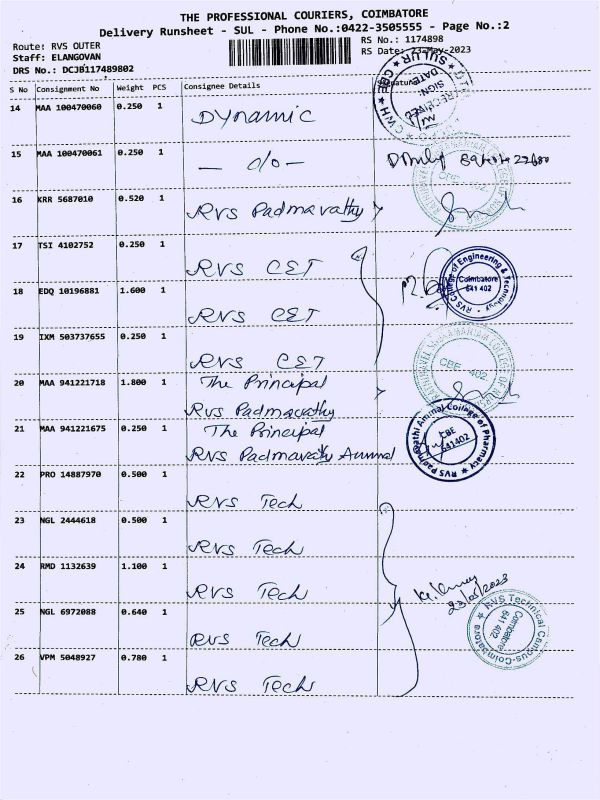 THE PROFESSIONAL COURIERS, COIMBATORE
Delivery Runsheet - SUL - Phone No.:0422-3505555 - Page No.:2
Route: RVS OUTER
Staff: ELANGOVAN
DRS No.: DCJB117489802
RS No.: 1174898
RS Date: 23-May-2023
S No Consignment No Weight PCS Consignee Details Signature
14 MAA 100470060 0.250 1 Dynamic
15 MAA 100470061 0.250 1 — d/o —
16 KRR 5687010 0.520 1 RVS Padmavathy
17 TSI 4102752 0.250 1 RVS CET
18 EDQ 10196881 1.600 1 RVS CET
19 IXM 503737655 0.250 1 RVS CET
20 MAA 941221718 1.800 1 The Principal
RVS Padmavathy
21 MAA 941221675 0.250 1 The Principal
RVS Padmavathy Ammal
22 PRO 14887970 0.500 1 RVS Tech
23 NGL 2444618 0.500 1 RVS Tech
24 RMD 1132639 1.100 1 RVS Tech
25 NGL 6972088 0.640 1 RVS Tech
26 VPM 5048927 0.780 1 RVS Tech
SULUR
CBE
DATE:
SIGN:
RECEIVED
CBE 402
RVS College of Engineering & Technology
Coimbatore
641 402
CBE 402
RVS Padmavathi Ammal College of Pharmacy
CBE
641402
23/05/2023
RVS Technical Campus-Coimbatore
Coimbatore
641 402